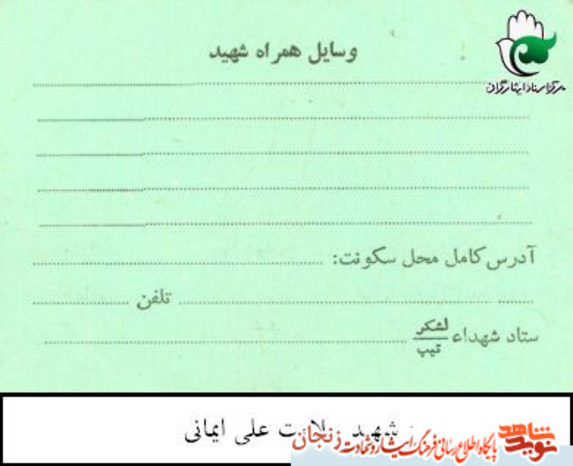 وسایل همراه شهید
مرکز اسناد ایثارگران
آدرس کامل محل سکونت:
تلفن
ستاد شهداء لشکر
تیپ
شهید علی ایمانی
نوید شاهد پایگاه اطلاع رسانی فرهنگ ایثار و شهادت زنجان